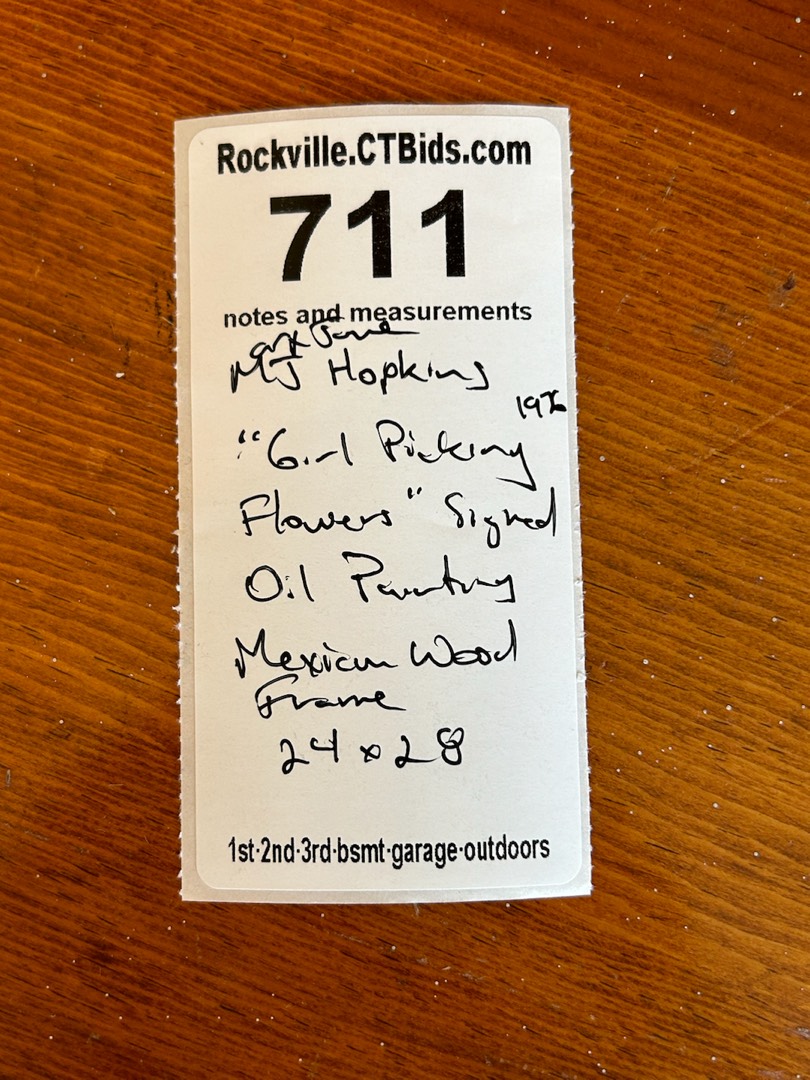 Rockville.CTBids.com
711
notes and measurements
Jane
MJ Hopkins
"Girl Picking
Flowers" Signed
Oil Painting
Mexican Wood
Frame
24 x 28
1st·2nd·3rd·bsmt·garage·outdoors